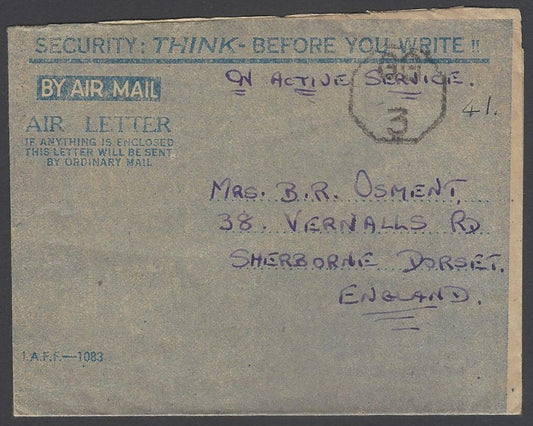 SECURITY: THINK- BEFORE YOU WRITE !!
BY AIR MAIL
ON ACTIVE SERVICE.
AIR LETTER
IF ANYTHING IS ENCLOSED
THIS LETTER WILL BE SENT
BY ORDINARY MAIL
3
41.
MRS. B.R. OSMENT,
38. VERNALLS RD
SHERBORNE DORSET.
ENGLAND.
I.A.F.F.—1083